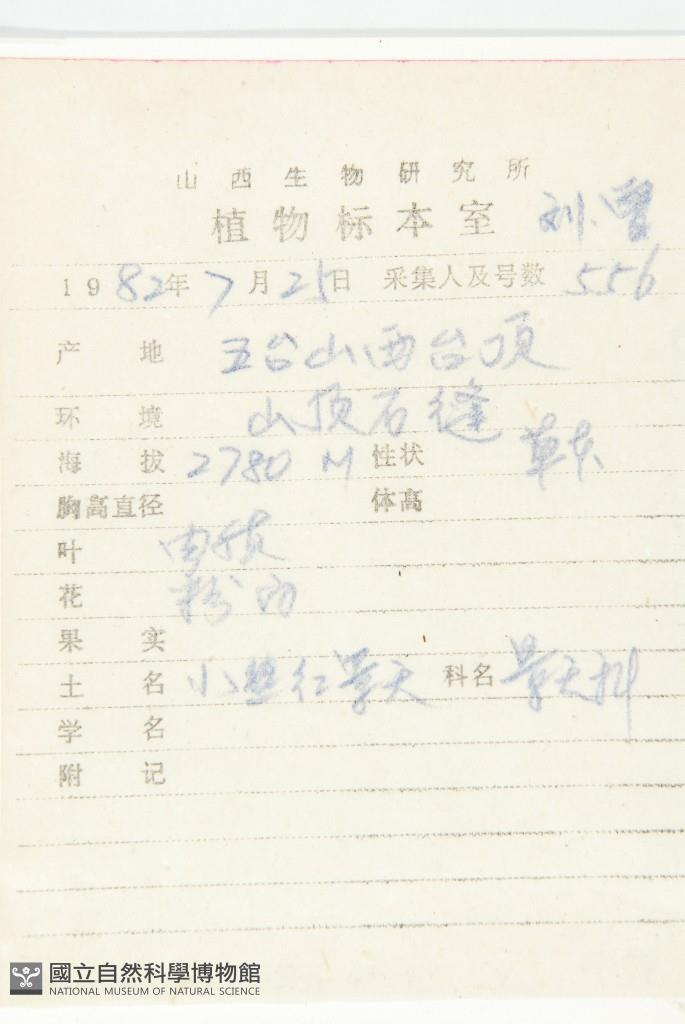 山西生物研究所
植物标本室 刘、曾
1982年7月25日 采集人及号数 556
产地 五台山西台顶
环境 山顶石缝
海拔 2780 M 性状 草本
胸高直径 体高
叶 肉质
花 粉白
果实
土名 小丛红景天 科名 景天科
学名
附记
國立自然科學博物館
NATIONAL MUSEUM OF NATURAL SCIENCE